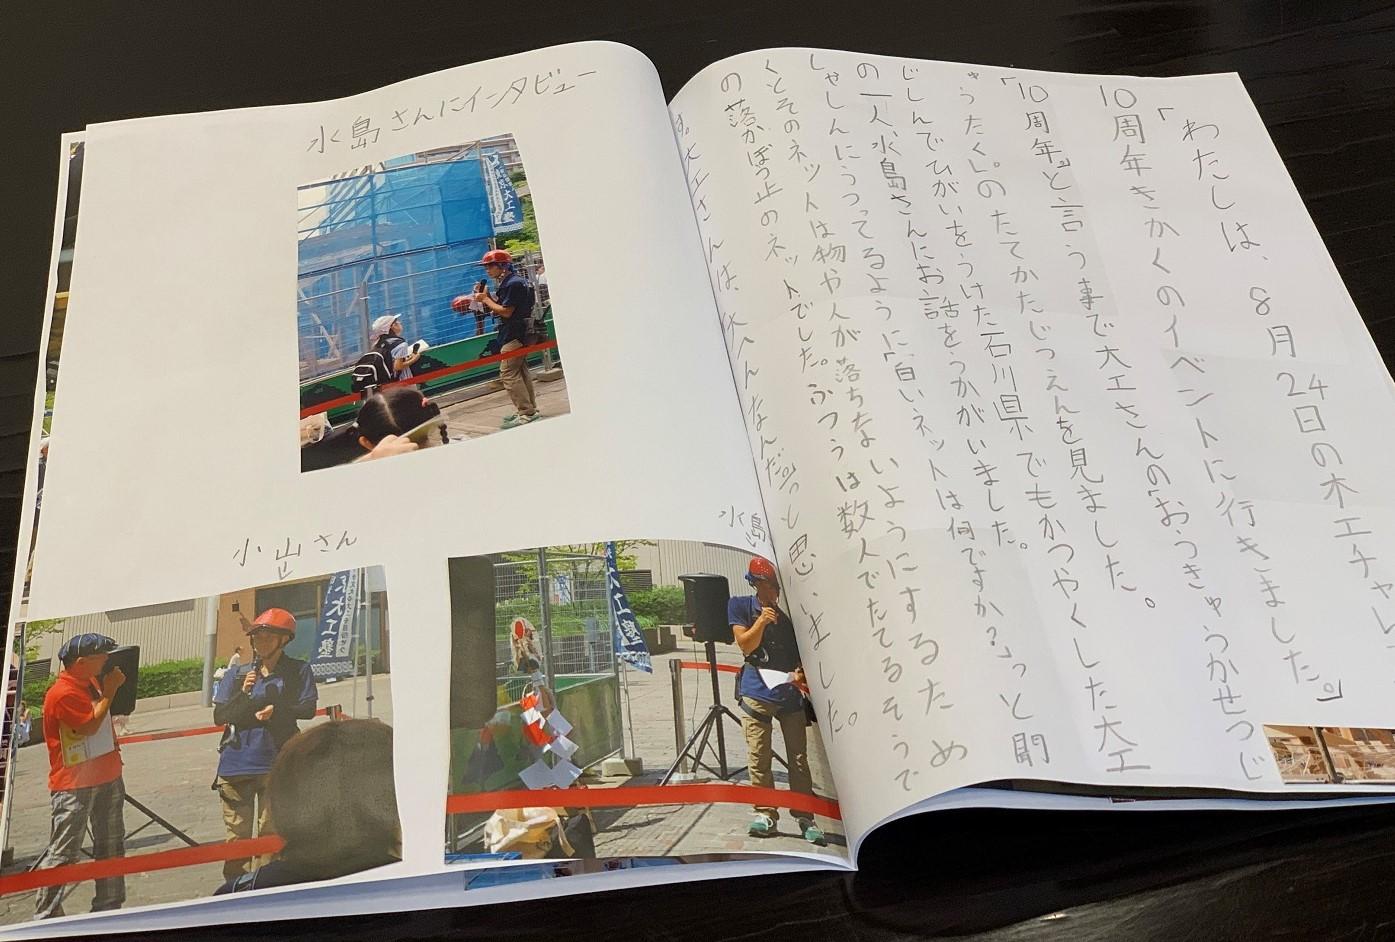 「わたしは、8月24日の木工チャレン
10周年きかくのイベントに行きました。」
「10周年」と言う事で大工さんの「おうきゅうかせつじ
ゅうたく」のたてかたじつえんを見ました。
じしんでひがいをうけた石川県でもかつやくした大工
の一人、水島さんにお話をうかがいました。
しゃしんにうつってるように「白いネットは何ですか?」っと聞
くとそのネットは物や人が落ちないようにするため
の落かぼう止のネットでした。ふつうは数人でたてるそうで
す。大工さんは、大へんなんだ。」っと思いました。
水島さんにインタビュー
大工塾
小山さん
大工塾
水島
大工塾